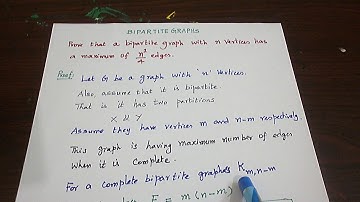 BIPARTITE GRAPHS
Prove that a bipartite graph with n vertices has
a maximum of n²/4 edges.
Proof: Let G be a graph with 'n' vertices.
Also, assume that it is bipartite.
That is it has two partitions
X & Y
Assume they have vertices m and n-m respectively
This graph is having maximum number of edges
When it is complete.
For a complete bipartite graphs K m,n-m
E = m(n-m)